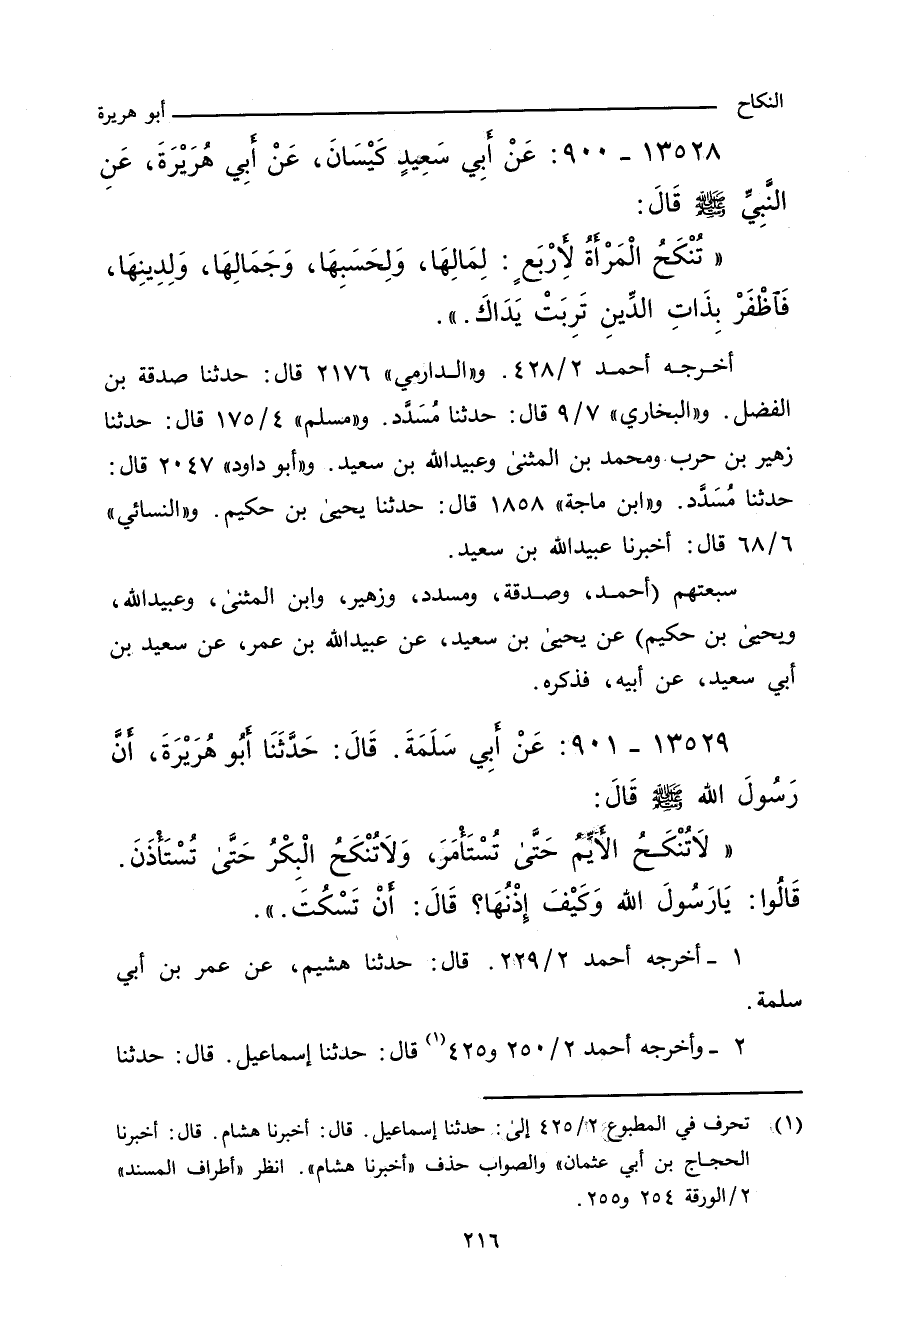 النكاح أبو هريرة
١٣٥٢٨ - ٩٠٠: عَنْ أَبِي سَعِيدٍ كَيْسَانَ، عَنْ أَبِي هُرَيْرَةَ، عَنِ
النَّبِيِّ ﷺ قَالَ:
« تُنْكَحُ الْمَرْأَةُ لأَرْبَعٍ : لِمَالِهَا، وَلِحَسَبِهَا، وَجَمَالِهَا، وَلِدِينِهَا،
فَاظْفَرْ بِذَاتِ الدِّينِ تَرِبَتْ يَدَاكَ.».
أخرجه أحمد ٤٢٨/٢. و«الدارمي» ٢١٧٦ قال: حدثنا صدقة بن
الفضل. و«البخاري» ٩/٧ قال: حدثنا مُسَدَّد. و«مسلم» ١٧٥/٤ قال: حدثنا
زهير بن حرب ومحمد بن المثنىٰ وعبيدالله بن سعيد. و«أبو داود» ٢٠٤٧ قال:
حدثنا مُسَدَّد. و«ابن ماجة» ١٨٥٨ قال: حدثنا يحيىٰ بن حكيم. و«النسائي»
٦٨/٦ قال: أخبرنا عبيدالله بن سعيد.
سبعتهم (أحمد، وصدقة، ومسدد، وزهير، وابن المثنىٰ، وعبيدالله،
ويحيىٰ بن حكيم) عن يحيىٰ بن سعيد، عن عبيدالله بن عمر، عن سعيد بن
أبي سعيد، عن أبيه، فذكره.
١٣٥٢٩ - ٩٠١: عَنْ أَبِي سَلَمَةَ. قَالَ: حَدَّثَنَا أَبُو هُرَيْرَةَ، أَنَّ
رَسُولَ الله ﷺ قَالَ:
« لَاتُنْكَحُ الأَيِّمُ حَتَّىٰ تُسْتَأْمَرَ، وَلَاتُنْكَحُ الْبِكْرُ حَتَّىٰ تُسْتَأْذَنَ.
قَالُوا: يَارَسُولَ الله وَكَيْفَ إِذْنُهَا؟ قَالَ: أَنْ تَسْكُتَ.».
١ - أخرجه أحمد ٢٢٩/٢. قال: حدثنا هشيم، عن عمر بن أبي
سلمة.
٢ - وأخرجه أحمد ٢٥٠/٢ و٤٢٥(١) قال: حدثنا إسماعيل. قال: حدثنا
(١) تحرف في المطبوع ٤٢٥/٢ إلىٰ: حدثنا إسماعيل. قال: أخبرنا هشام. قال: أخبرنا
الحجاج بن أبي عثمان» والصواب حذف «أخبرنا هشام». انظر «أطراف المسند»
٢/الورقة ٢٥٤ و٢٥٥.
٢١٦